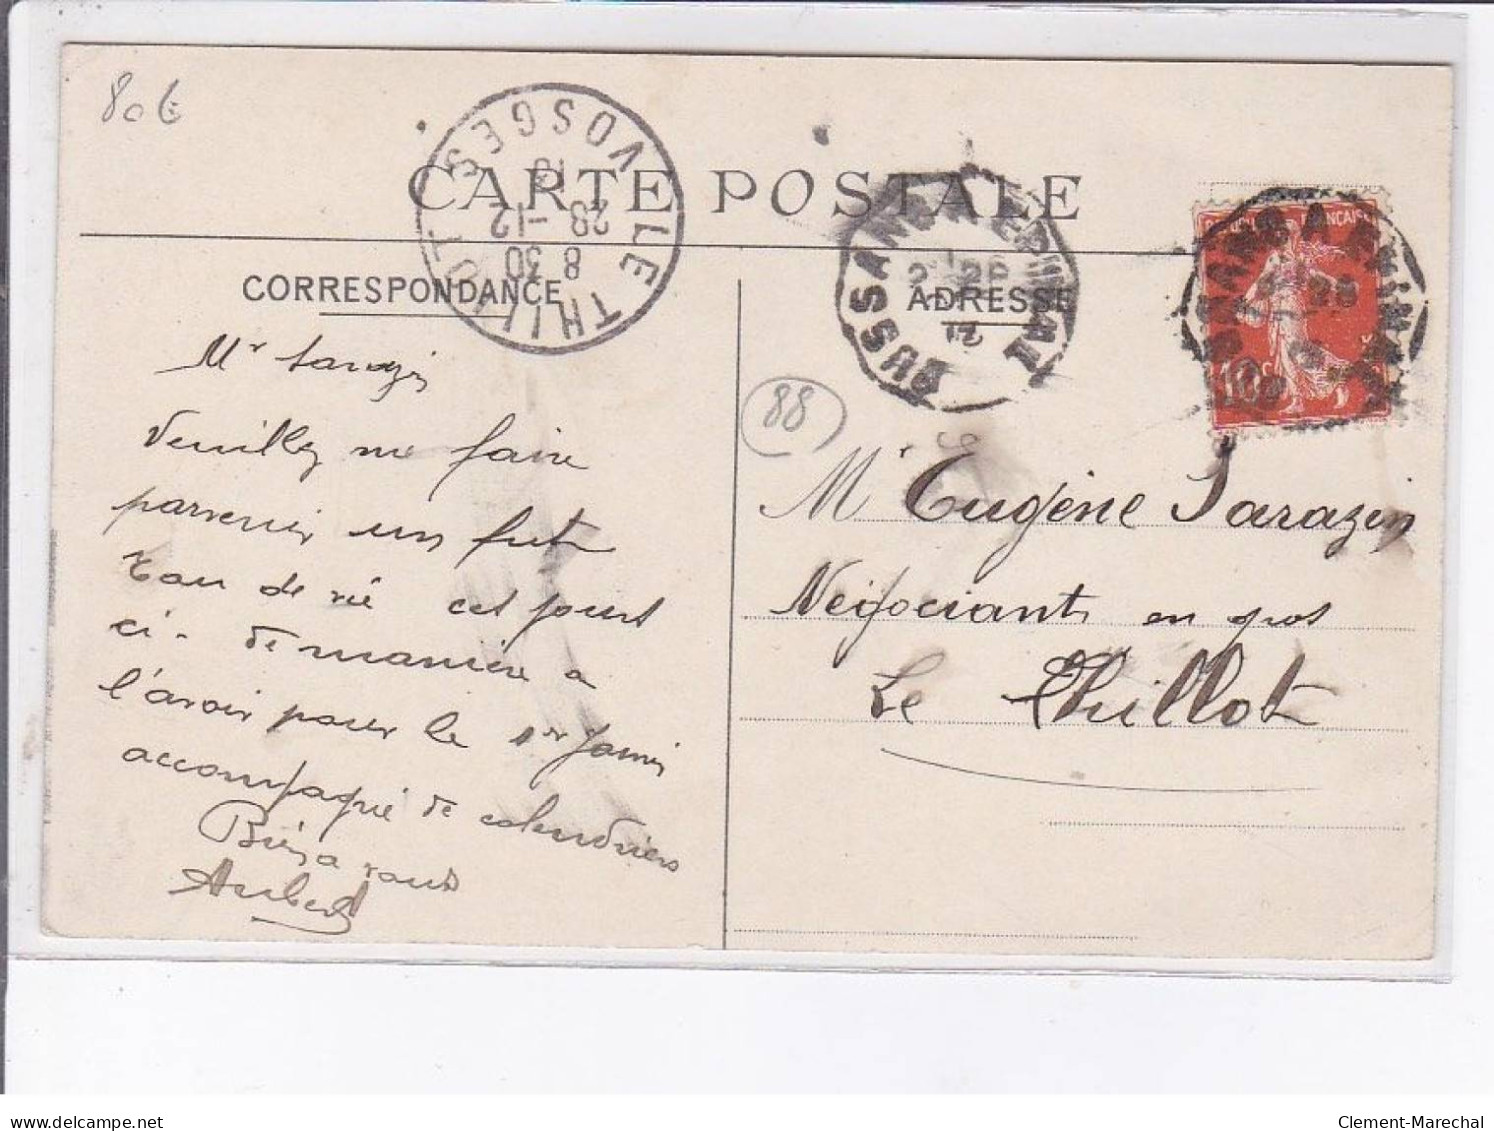 80€
CARTE POSTALE
LE THILLOT VOSGES
8 30
28 -12
BUSSANG A EPINAL
CORRESPONDANCE
ADRESSE
10c
88
Mr Sarazin
Veuillez me faire
parvenir un fut
eau de vie cet jours
ci - de manière a
l'avoir pour le 1er Janvier
accompagné de calendriers
Bien a vous
Aubert
Mr Eugène Sarazin
Négociant en gros
Le Thillot
delcampe.net
Clement-Marechal